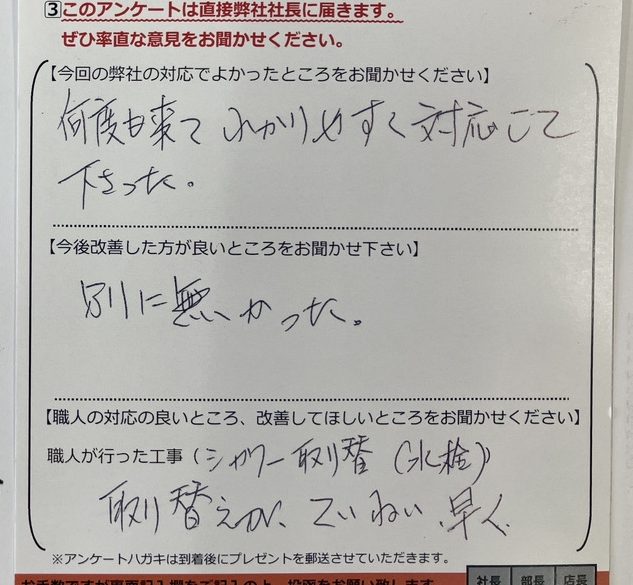 ③このアンケートは直接弊社社長に届きます。
ぜひ率直な意見をお聞かせください。
【今回の弊社の対応でよかったところをお聞かせください】
何度も来て わかりやすく 対応して
下さった。
【今後改善した方が良いところをお聞かせ下さい】
別に無かった。
【職人の対応の良いところ、改善してほしいところをお聞かせください】
職人が行った工事(シャワー取り替 (水栓))
取り替えが、ていねい、早く、
※アンケートハガキは到着後にプレゼントを郵送させていただきます。
お手数ですが裏面記入欄をご記入の上、投函をお願い致します
社長 部長 店長